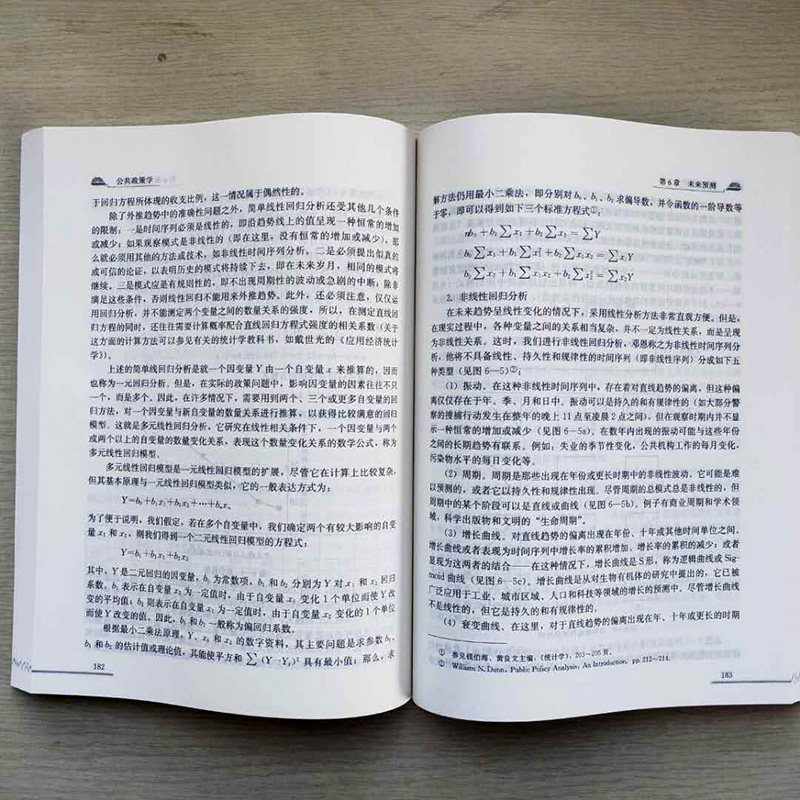 公共政策学
于回归方程所体现的收支比例，这一情况属于偶然性的。
除了外推趋势中的准确性问题之外，简单线性回归分析还受其他几个条件
的限制：一是时间序列必须是线性的，即沿趋势线上的值呈现一种恒常的增加
或减少；如果观察模式是非线性的（即在这里，没有恒常的增加或减少），那
么就必须用其他的方法或技术，如非线性时间序列分析。二是必须提出似真的
或可信的论证，以表明历史的模式将持续下去，即在未来岁月，相同的模式将
继续。三是模式应是有规则性的，即不出现周期性的波动或急剧的中断；除非
满足这些条件，否则线性回归不能用来外推趋势。此外，还必须注意，仅仅运
用回归分析，并不能测定两个变量之间的数量关系的强度，所以，在测定直线回
归方程的同时，还往往需要计算概率配合直线回归方程式强度的相关系数（关于
这方面的计算方法可以参见有关的统计学教科书，如戴世光的《应用经济统计
学》）。
上述的简单线性回归分析是就一个因变量Y由一个自变量x来推算的，因而
也称为一元回归分析。但是，在实际的政策问题中，影响因变量的因素往往不只
一个，而是多个。因此，在许多情况下，需要用到两个、三个或更多自变量的回
归方法，对一个因变量与新自变量的数量关系进行推算，以获得比较满意的回归
模型。这就是多元线性回归分析，它研究在线性相关条件下，一个因变量与两个
或两个以上的自变量的数量变化关系，表现这个数量变化关系的数学公式，称为
多元线性回归模型。
多元线性回归模型是一元线性回归模型的扩展，尽管它在计算上比较复杂，
但其基本原理与一元线性回归模型类似，它的一般表达方式为：
Y=b₀+b₁x₁+b₂x₂+⋯+bₙxₙ
为了便于说明，我们假定，若在多个自变量中，我们确定两个有较大影响的自变
量x₁和x₂，则我们得到一个二元线性回归模型的方程式：
Y=b₀+b₁x₁+b₂x₂
其中，Y是二元回归的因变量，b₀为常数项，b₁和b₂分别为Y对x₁和x₂回归
系数。b₁表示在自变量x₂为一定值时，由于自变量x₁变化1个单位而使Y改
变的平均值；b₂则表示在自变量x₁为一定值时，由于自变量x₂变化的1个单位
而使Y改变的值。因此，b₁和b₂一般称为偏回归系数。
根据最小二乘法原理，Y、x₁和x₂的数字资料，其主要问题是求参数b₀、
b₁和b₂的估计值或理论值，其能使平方和∑(Y-Yₜ)²具有最小值；那么，求
182
第6章 未来预测
解方法仍用最小二乘法，即分别对b₀、b₁、b₂求偏导数，并令函数的一阶导数等
于零，即可以得到如下三个标准方程式①：
nb₀+b₁∑x₁+b₂∑x₂=∑Y
b₀∑x₁+b₁∑x₁²+b₂∑x₁x₂=∑x₁Y
b₀∑x₂+b₁∑x₁x₂+b₂∑x₂²=∑x₂Y
2. 非线性回归分析
在未来趋势呈线性变化的情况下，采用线性分析方法非常直观方便。但是，
在现实过程中，各种变量之间的关系相当复杂，并不一定为线性关系，而是呈现
为非线性关系。这时，我们进行非线性回归分析，邓恩称之为非线性时间序列分
析，他将不具备线性、持久性和规律性的时间序列（即非线性序列）分成如下五
种类型（见图6—5）②：
（1）振动。在这种非线性时间序列中，存在着对直线趋势的偏离，但这种偏
离仅仅存在于年、季、月和日中。振动可以是持久的和有规律性的（如大部分警
察的搜捕行动发生在整年的晚上11点至凌晨2点之间），但在观察时期内并不显
示一种恒常的增加或减少（见图6—5a）。在数年内出现的振动可能与这些年份
之间的长期趋势有联系。例如：失业的季节性变化，公共机构工作的每月变化，
污染物水平的每日变化等。
（2）周期。周期是那些出现在年份或更长时期中的非线性波动。它可能是难
以预测的，或者它以持久性和规律性出现。尽管周期的总模式总是非线性的，但
周期中的某个阶段可以是直线或曲线（见图6—5b）。例子有商业周期和学术领
域、科学出版物和文明的“生命周期”。
（3）增长曲线。对直线趋势的偏离出现在年份、十年或其他时间单位之间。
增长曲线或者表现为时间序列中增长率的累积增加、增长率的累积的减少；或者
显现为这两者的结合——在这种情况下，增长曲线是S形，称为逻辑曲线或Sig-
moid曲线（见图6—5c）。增长曲线是从对生物有机体的研究中提出的，它已被
广泛应用于工业、城市区域、人口和科技等领域的增长的预测中。尽管增长曲线
不是线性的，但它是持久的和有规律性的。
（4）衰变曲线。在这里，对于直线趋势的偏离出现在年、十年或更长的时期
① 参见钱伯海、黄良文主编：《统计学》，203～205页。
② William N. Dunn, Public Policy Analysis: An Introduction, pp. 212～214.
183